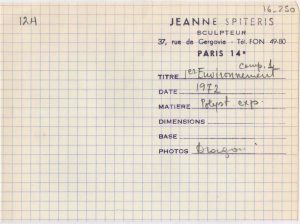 16-250
12H
JEANNE SPITERIS
SCULPTEUR
37, rue de Gergovie - Tél. FON 49-80
PARIS 14e
comp. 4
TITRE 1er Environnement
DATE 1972
MATIERE Polyst exp.
DIMENSIONS
BASE
PHOTOS Dragon